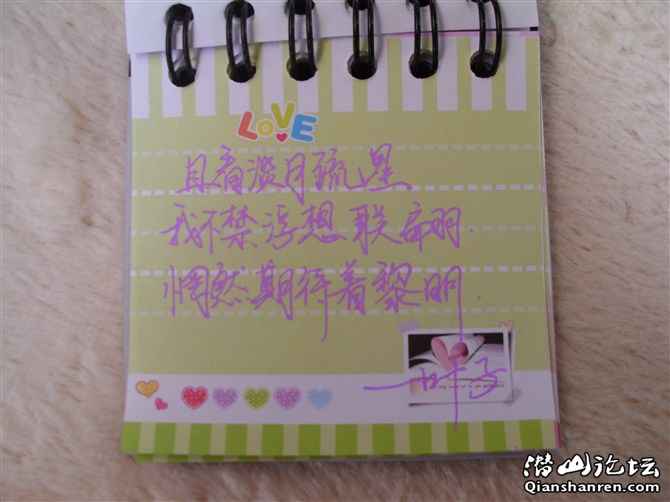 LOVE
且看淡月疏星
我不禁浮想联翩
惘然期待着黎明.
——叶子
潜山论坛
Qianshanren.com